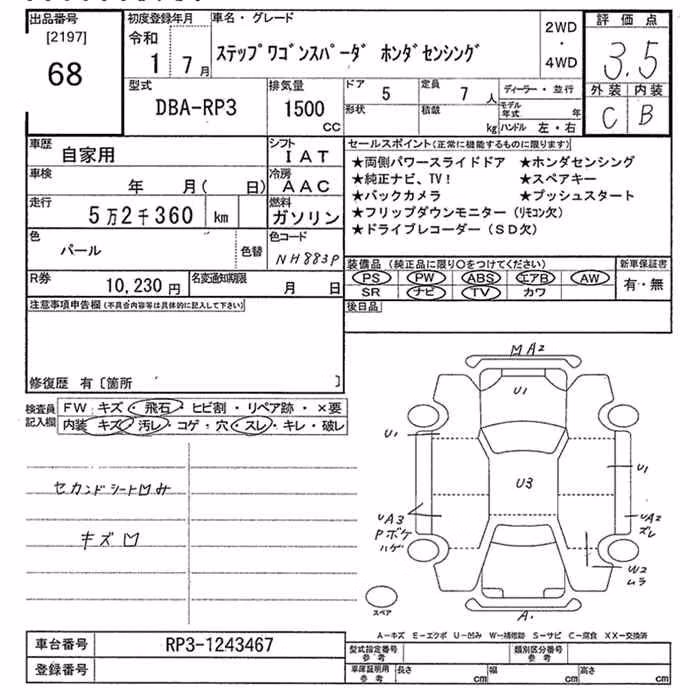 出品番号
[2197]
68
初度登録年月
令和
1 7月
車名・グレード
ステップワゴンスパーダ ホンダセンシング
2WD
・
4WD
評価点
3.5
外装 内装
C B
型式
DBA-RP3
排気量
1500
CC
ドア
5
定員
7人
形状
積載
kg
ディーラー・並行
モデル年式 年
ハンドル 左・右
車歴
自家用
シフト
IAT
車検
年 月( 日)
冷房
AAC
走行
5万2千360 km
燃料
ガソリン
色
パール
色替
色コード
NH883P
R券
10,230円
名変通知期限
月 日
セールスポイント(正常に機能するものに限ります)
★両側パワースライドドア ★ホンダセンシング
★純正ナビ、TV! ★スペアキー
★バックカメラ ★プッシュスタート
★フリップダウンモニター(リモコン欠)
★ドライブレコーダー(SD欠)
装備品(純正品に限り〇をつけてください)
PS PW ABS エアB AW
SR ナビ TV カワ
新車保証書
有・無
後日品
注意事項申告欄(不具合内容等は具体的に記入して下さい)
修復歴 有〔箇所 〕
検査員記入欄
FW キズ・飛石・ヒビ割・リペア跡・×要
内装 キズ・汚レ・コゲ・穴・スレ・キレ・破レ
セカンドシート凹み
キズ凹
MA2
U1
U1
U3
U1
UA3
Pボケ
ハゲ
UA2
ズレ
W2
ムラ
A.
スペア
A-キズ E-エクボ U-凹み W-補修跡 S-サビ C-腐食 XX-交換済
車台番号
RP3-1243467
登録番号
型式指定番号
参考
類別区分番号
参考
車庫証明用
参考
長さ cm
幅 cm
高さ cm